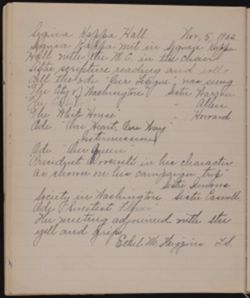 Sigma Kappa Hall Nov. 5, 1902
Sigma Kappa met in Sigma Kappa
Hall with the W.C. in the chair
After scripture reading and roll
call the ode "Our League" was sung
The City of Washington Sister
The " Allen
The White House " Howard
Ode "One Heart, One Way"
Intermission
Ode "Our Queen"
President Roosevelt in his character
as shown on his campaign trip"
Sister
Society in Washington Sister
Ode "Sweetest
The meeting adjourned with the
yell and grip.
Ethel M. Higgins